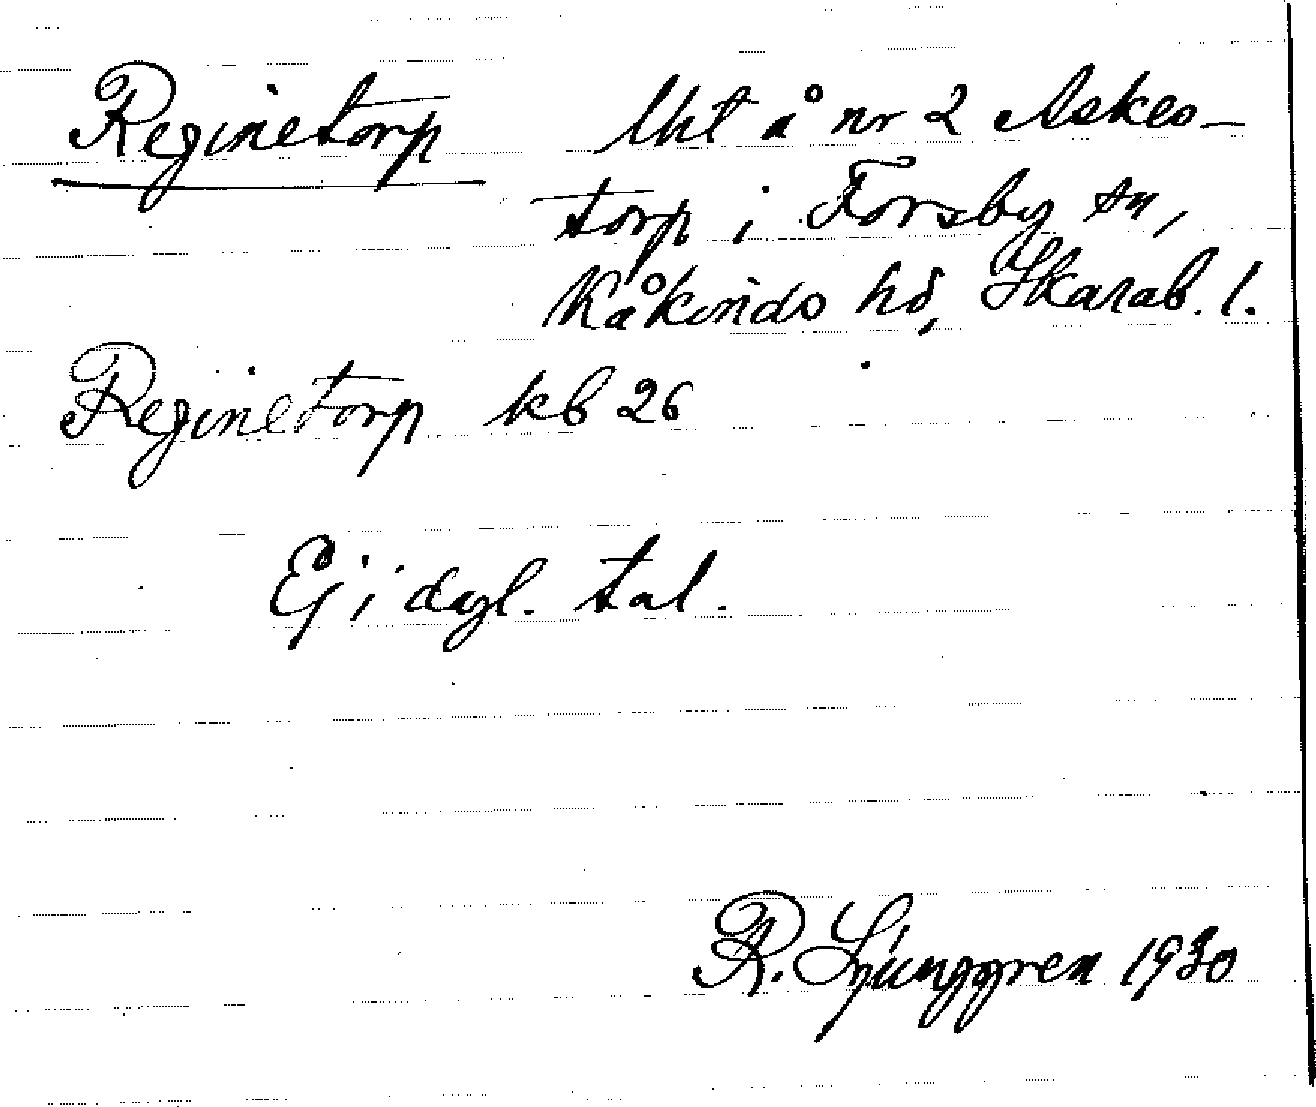 Reginetorp Uht å nr 2 Askes-
torp i Forsby sn,
Kåkinds hd, Skarab. l.
Reginetorp kb 26
Ej i dagl. tal.
R. Ljunggren 1930